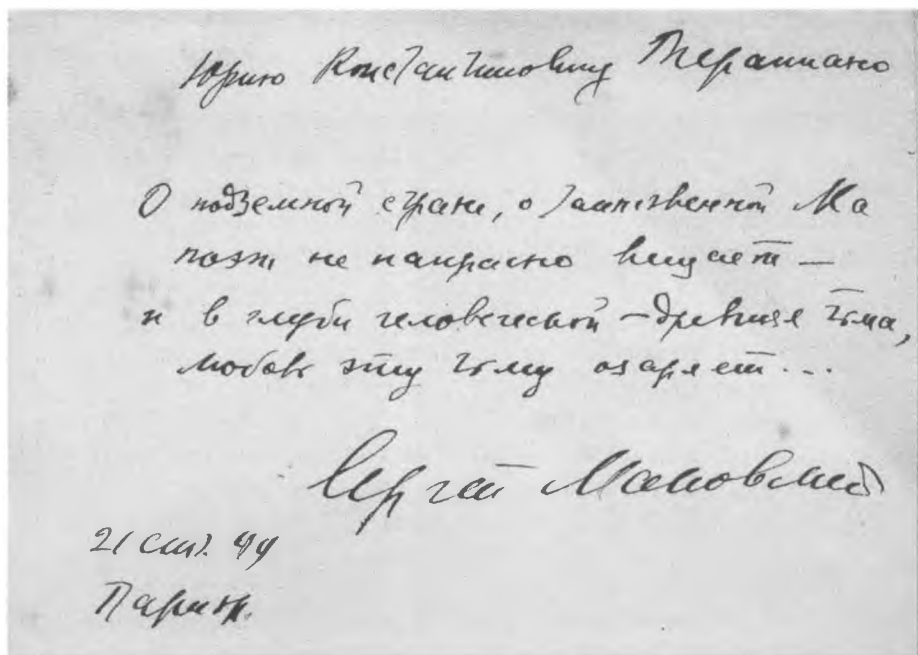 Юрию Константиновичу Терапиано
О подземной стране, о таинственной Ма
поэт не напрасно вещает —
и в глуби человеческой — древняя тьма,
любовь эту тьму озаряет...
Сергей Маковский
21 49
Париж.